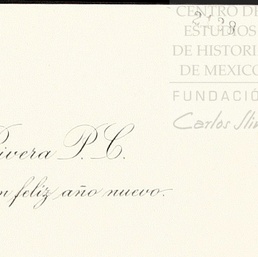 CENTRO DE
ESTUDIOS
DE HISTORI
DE MEXICO
FUNDACIÓ
Carlos Sli
Rivera P. C.
n feliz año nuevo.